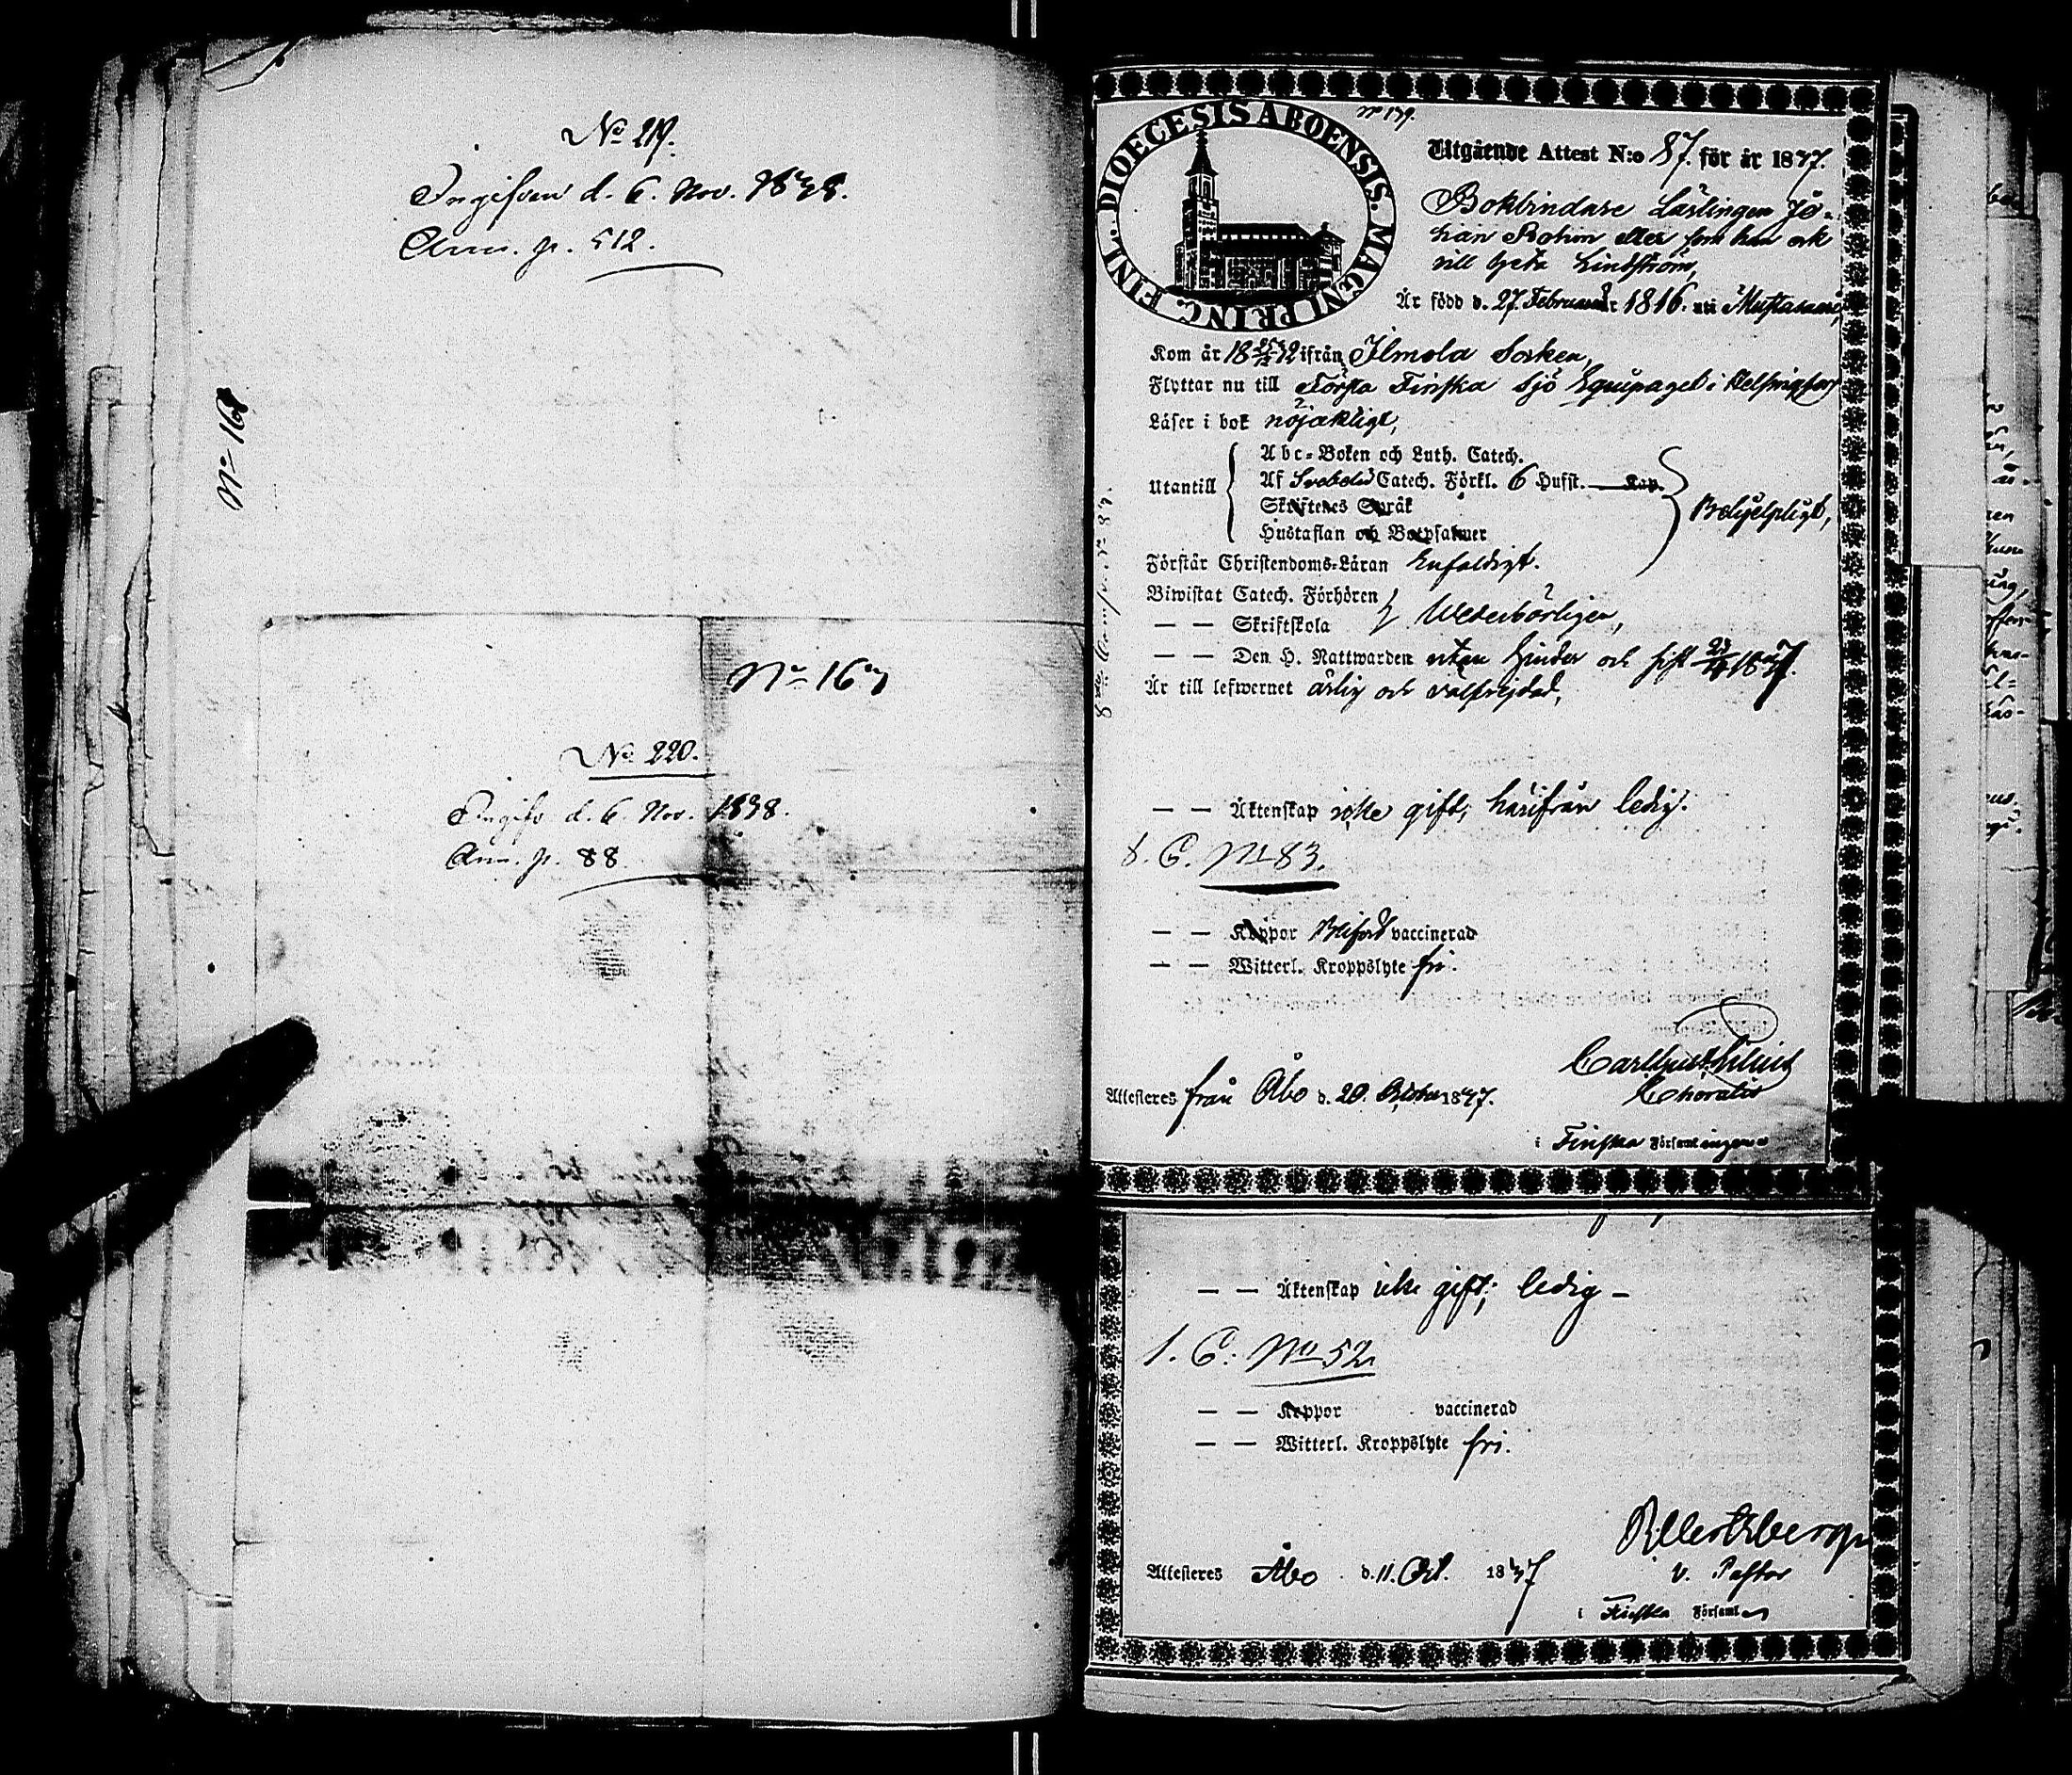 No 219.
Ingifven d. 6. Nov. 1838.
Ann. p. 512.
No 168
No 167
No 220.
Ingifv d. 6. Nov. 1838.
Ann. p. 88.
No 179.
DIOECESIS ABOENSIS. MAGNI PRINC. FINL.
Utgående Attest N:o 87. för år 1837.
Bokbindare Lärlingen Jo-
han Bohm eller som han ock
vill heta Lindström,
Är född d. 27 Februarii 1816. uti Mustasaari,
Kom år 18 32 ifrån Ilmola Socken,
Flyttar nu till Första Finska Sjö Equipaget i Helsingfors
Läser i bok nöjakligt,
Utantill
Abc-Boken och Luth. Catech.
Af Svebelii Catech. Förkl. 6 Hufst. Kap.
Skriftenes Språk
Hustaflan och Botpsalmer
Behjelpligt,
Förstår Christendoms-Läran Enfaldigt.
Biwistat Catech. Förhören
— — Skriftskola
Wederbörligen,
— — Den H. Nattwarden utan hinder och sist 23/4 1837.
Är till lefwernet ärlig och välfrejdad,
— — Äktenskap icke gift, härifrån ledig.
S. C. No 83.
— — Koppor vaccinerad
— — Witterl. Kroppslyte fri.
Attesteres från Åbo d. 20. October 1837.
i Finska Församlingen
— — Äktenskap icke gift; ledig —
S. C. No 52
— — Koppor vaccinerad
— — Witterl. Kroppslyte fri.
Attesteres Åbo d. 11. Oct. 1837
v. Pastor
i Finska Församl